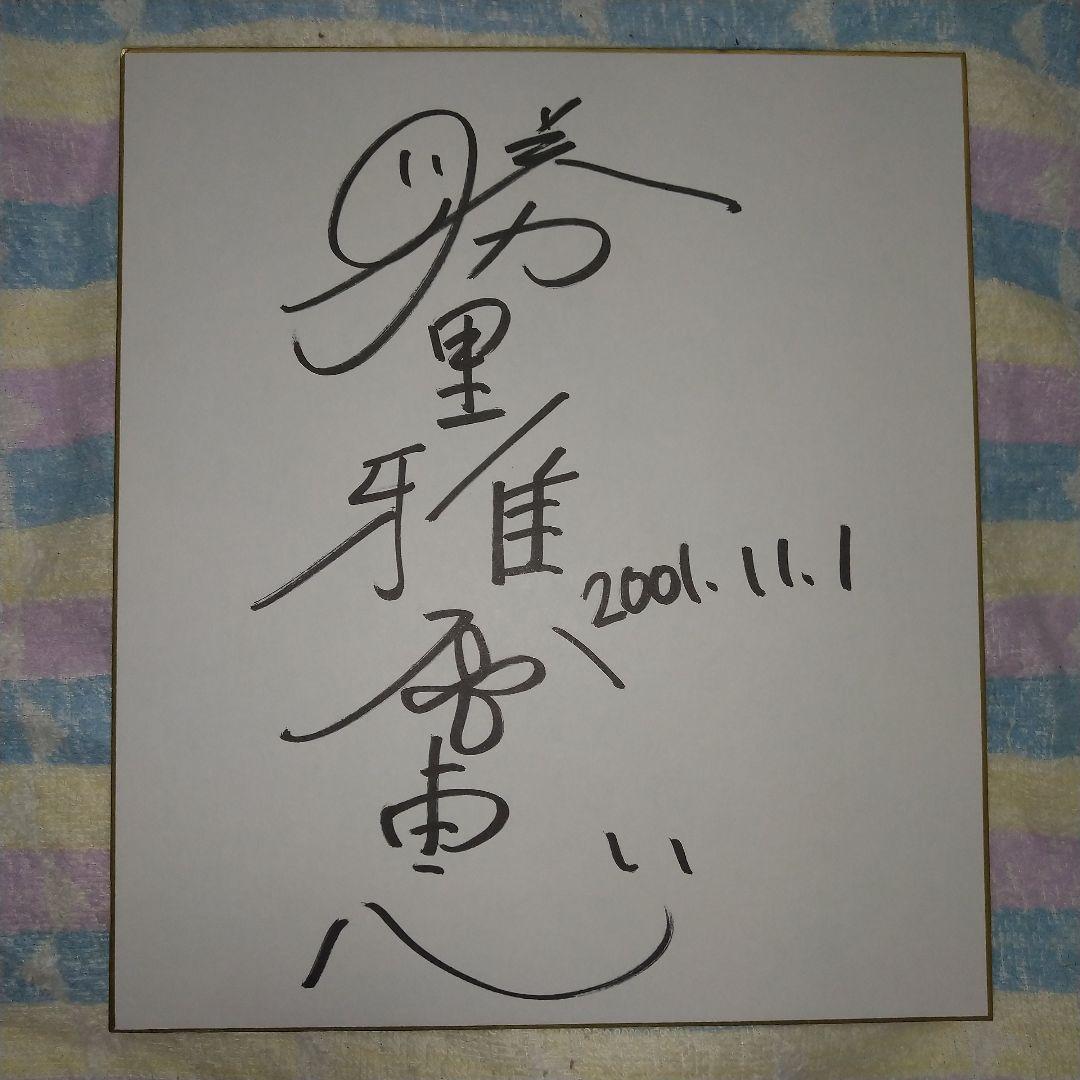 勝野雅奈恵
2001.11.1